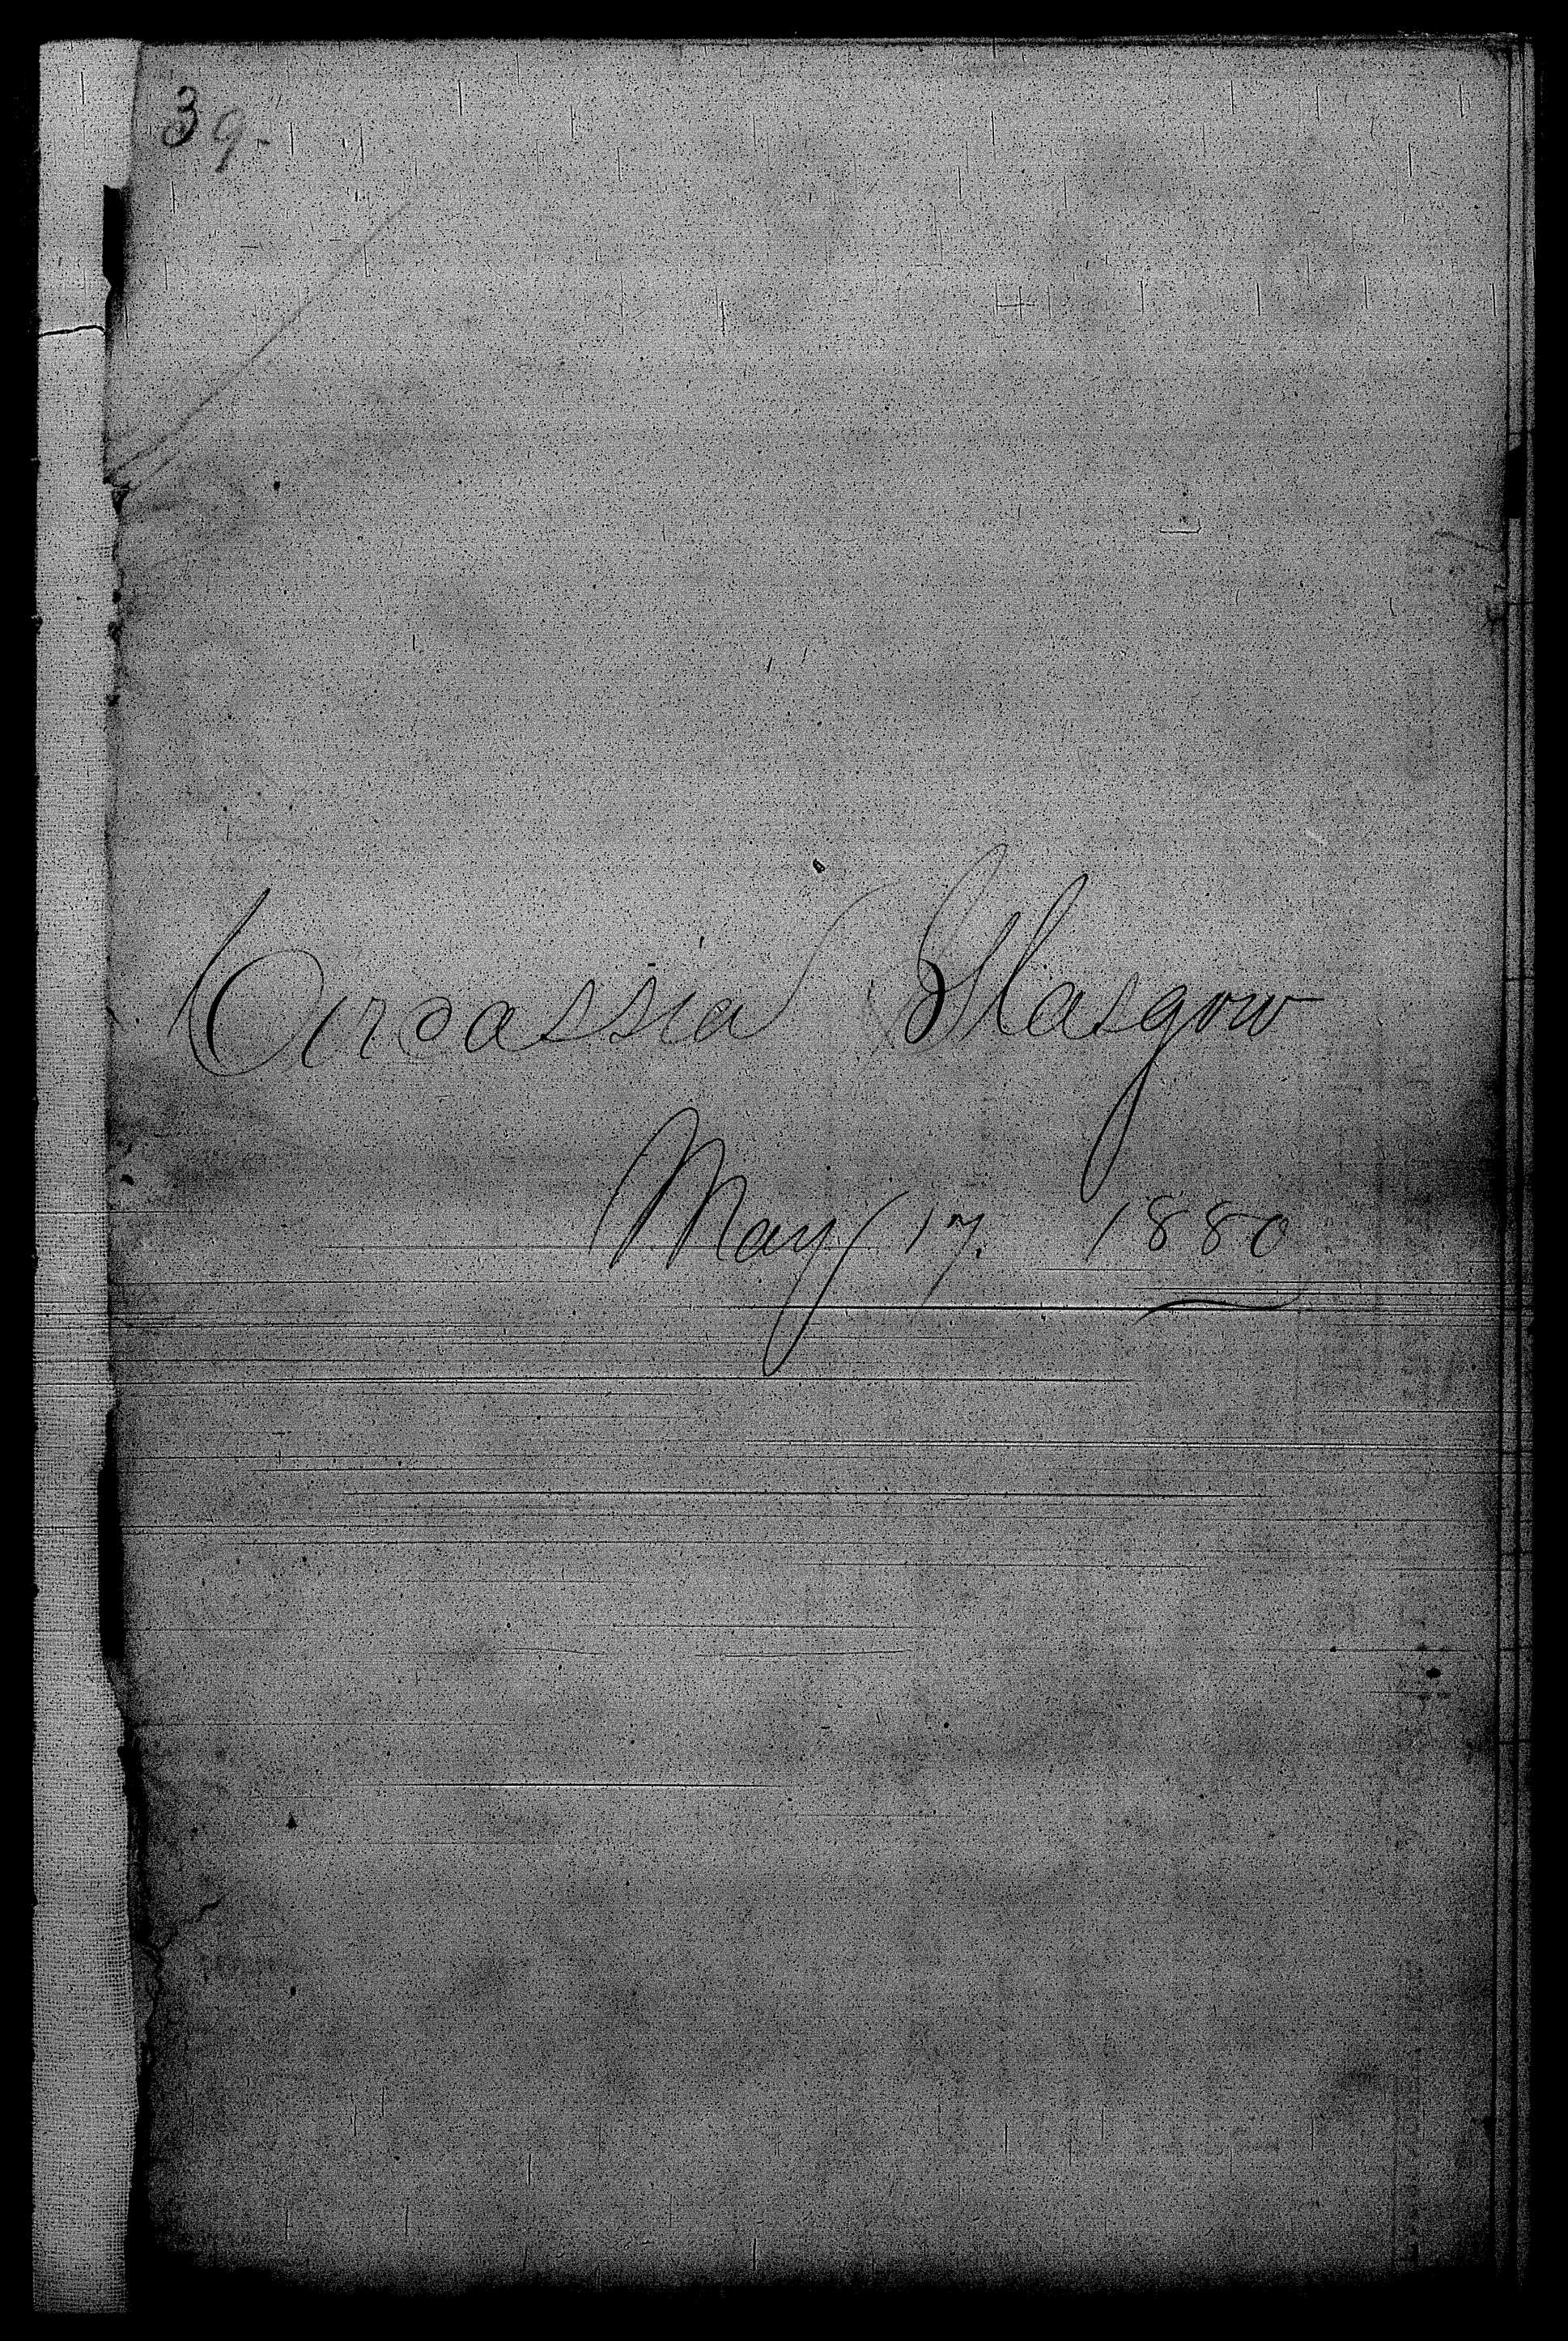 39-
Circassia Glasgow
May 17. 1880